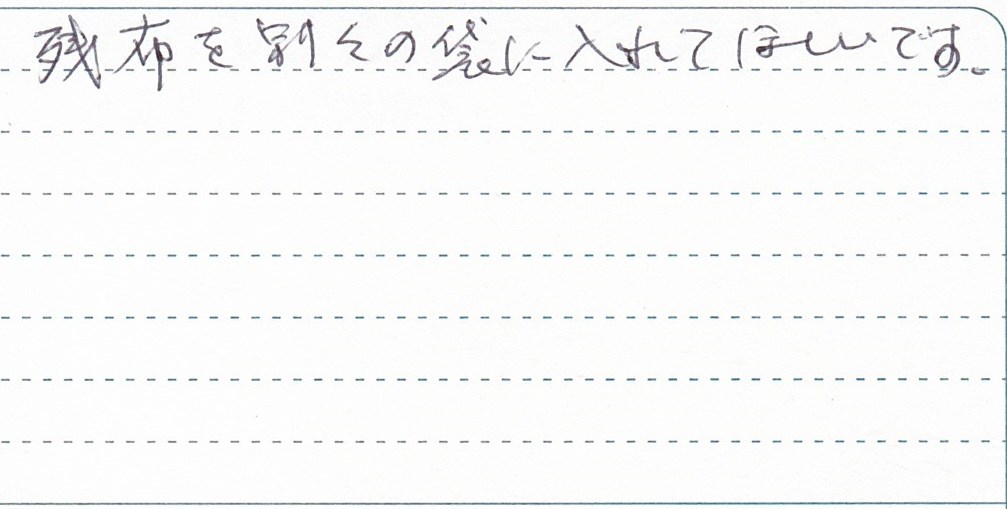 残布を別々の袋に入れてほしいです。